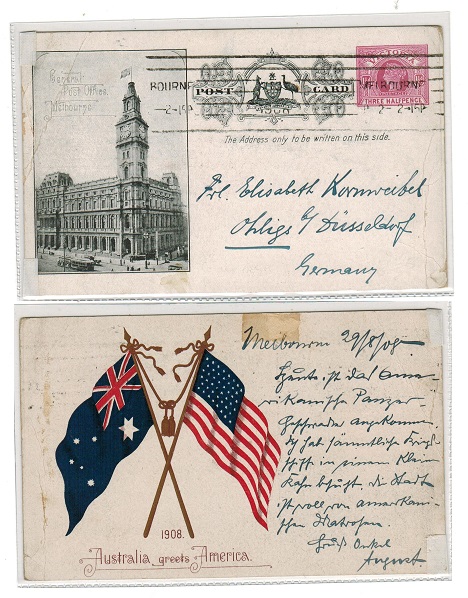 General
Post Office,
Melbourne
BOURNE
VICTORIA
MELBOURNE
POST CARD
THREE HALFPENCE
The Address only to be written on this side.
Frl. Elisabeth Kornweibel
Ohligs b/ Düsseldorf
Germany
Melbourne 29/8/08
Heute ist das Ame-
rikanische Panzer
Geschwader angekommen.
Ich hab sämmtliche Kriegs
schiffe in einem kleinen
Kahn besucht. die Stadt
ist voll von amerikani-
schen Matrosen.
Gruß Onkel
August
1908.
Australia greets America.